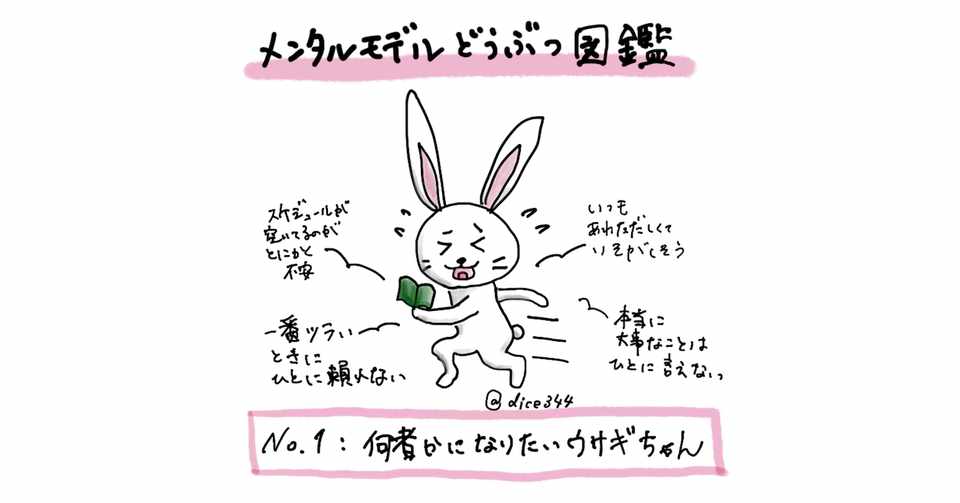 メンタルモデルどうぶつ図鑑
スケジュールが
空いてるのが
とにかく
不安
いつも
あわただしくて
いそがしそう
一番ツラい
ときに
ひとに頼れない
本当に
大事なことは
ひとに言えないっ
@dice344
No.1:何者かになりたいウサギちゃん